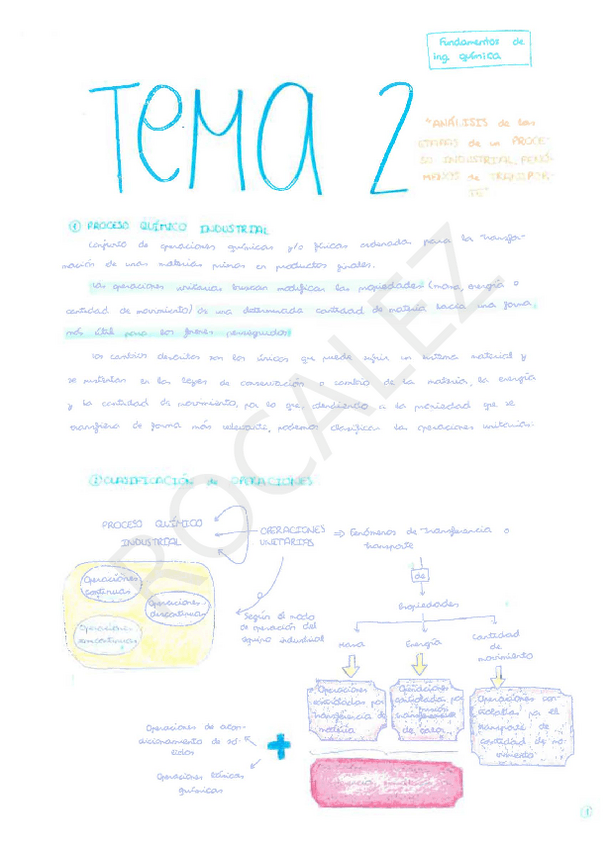 Fundamentos de
ing. química
TEMA 2
"ANÁLISIS de las
ETAPAS de un PROCE-
SO INDUSTRIAL. FENÓ-
MENOS de TRANSPOR-
TE"
① PROCESO QUÍMICO INDUSTRIAL
Conjunto de operaciones químicas y/o físicas ordenadas para la transfor-
mación de unas materias primas en productos finales.
Las operaciones unitarias buscan modificar las propiedades (masa, energía o
cantidad de movimiento) de una determinada cantidad de materia hacia una forma
más útil para los fines perseguidos
Los cambios descritos son los únicos que puede sufrir un sistema material y
se sustentan en las leyes de conservación o cambio de la materia, la energía
y la cantidad de movimiento, por lo que, atendiendo a la propiedad que se
transfiera de forma más relevante, podemos clasificar las operaciones unitarias:
② CLASIFICACIÓN de OPERACIONES
PROCESO QUÍMICO
INDUSTRIAL
OPERACIONES
UNITARIAS
⇒ Fenómenos de transferencia o
transporte
de
Propiedades
Operaciones
continuas
Operaciones
discontinuas
Operaciones
semicontinuas
Según el modo
de operación del
equipo industrial
Masa
Energía
Cantidad
de
movimiento
Operaciones
controladas por
transferencia de
materia
Operaciones
controladas por
transferencia
de calor
Operaciones con-
troladas por el
transporte de
cantidad de mo-
vimiento
Operaciones de acon-
dicionamiento de só-
lidos
Operaciones básicas
químicas
+
1
ROCALEZ